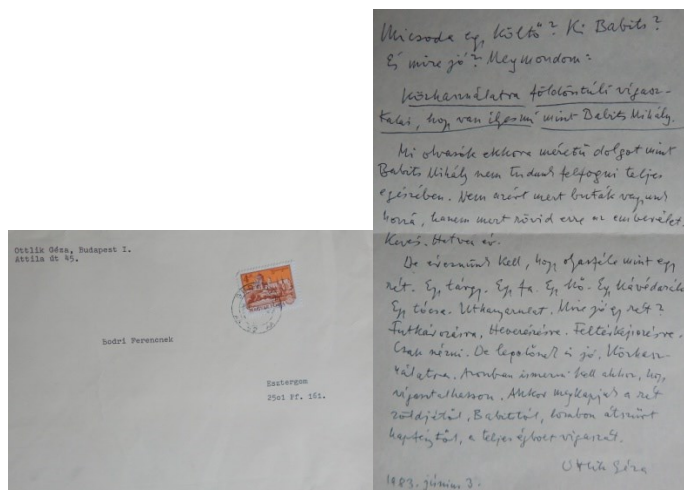 Ottlik Géza, Budapest I.
Attila út 45.
Bodri Ferencnek
Esztergom
2501 Pf. 161.
Micsoda egy költő? Ki Babits?
És mire jó? Megmondom:
Közhasználatra földöntúli vigasz-
talás, hogy van ilyesmi mint Babits Mihály.
Mi olvasók ekkora méretű dolgot mint
Babits Mihály nem tudunk felfogni teljes
egészében. Nem azért mert buták vagyunk
hozzá, hanem mert rövid erre az emberélet.
Kevés. Hetven év.
De éreznünk kell, hogy olyasféle mint egy
rét. Egy tárgy. Egy fa. Egy kő. Egy kávédaráló.
Egy tócsa. Utkanyarulat. Mire jó egy rét?
Futkározásra. Heverészésre.
Csak nézni. De legelőnek is jó. Közhasz-
nálatra. Azonban ismerni kell ahhoz, hogy
vigasztalhasson. Akkor megkapjuk a rét
zöldjétől, Babitstól, lombon átszűrt
napfénytől, a teljes égbolt vigaszát.
Ottlik Géza
1983. június 3.